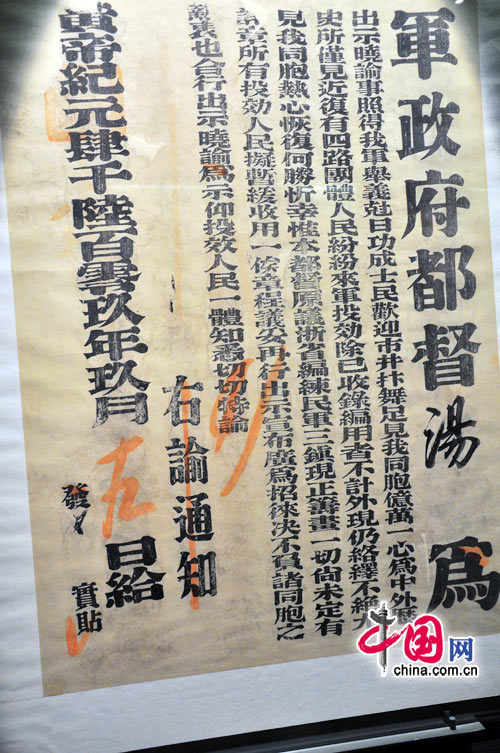 軍政府都督湯 為
出示曉諭事照得我軍舉義尅日功成士民歡迎市井抃舞足見我同胞億萬一心為中外歷
史所僅見近復有四路團體人民紛紛來軍投効除已收錄編用者不計外現仍絡繹不絕
見我同胞熱心恢復何勝忻幸惟本都督原議浙省編練民軍三鎮現正籌畫一切尚未定有
章所有投効人民擬暫緩收用一俟章程議妥再行出示宣布廣為招徠決不負諸同胞之
衷也合行出示曉諭為示仰投效人民一體知悉切切特諭
右諭通知
黃帝紀元肆千陸百零玖年玖月 日給
發 實貼
中国网
china.com.cn